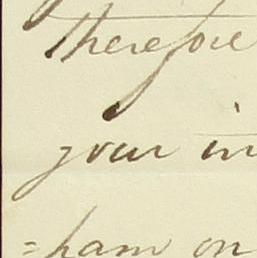 therefore
your in
=ham on